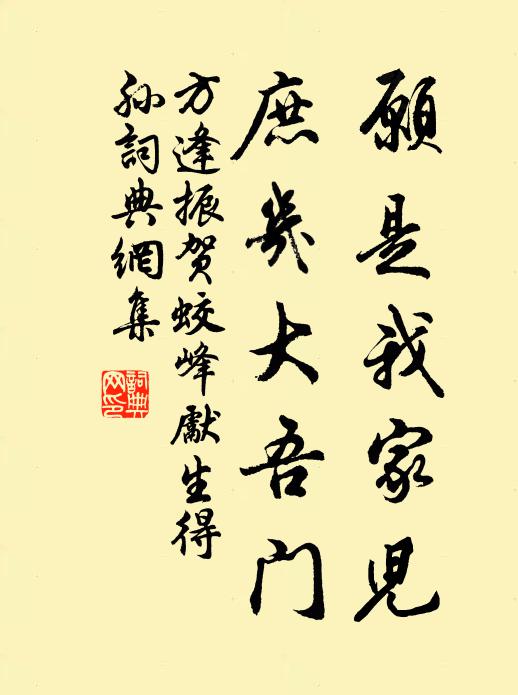 願是我家児
庶幾大吾门
方逢振贺蛟峰獻生得
孙詞典網集
詞典网印